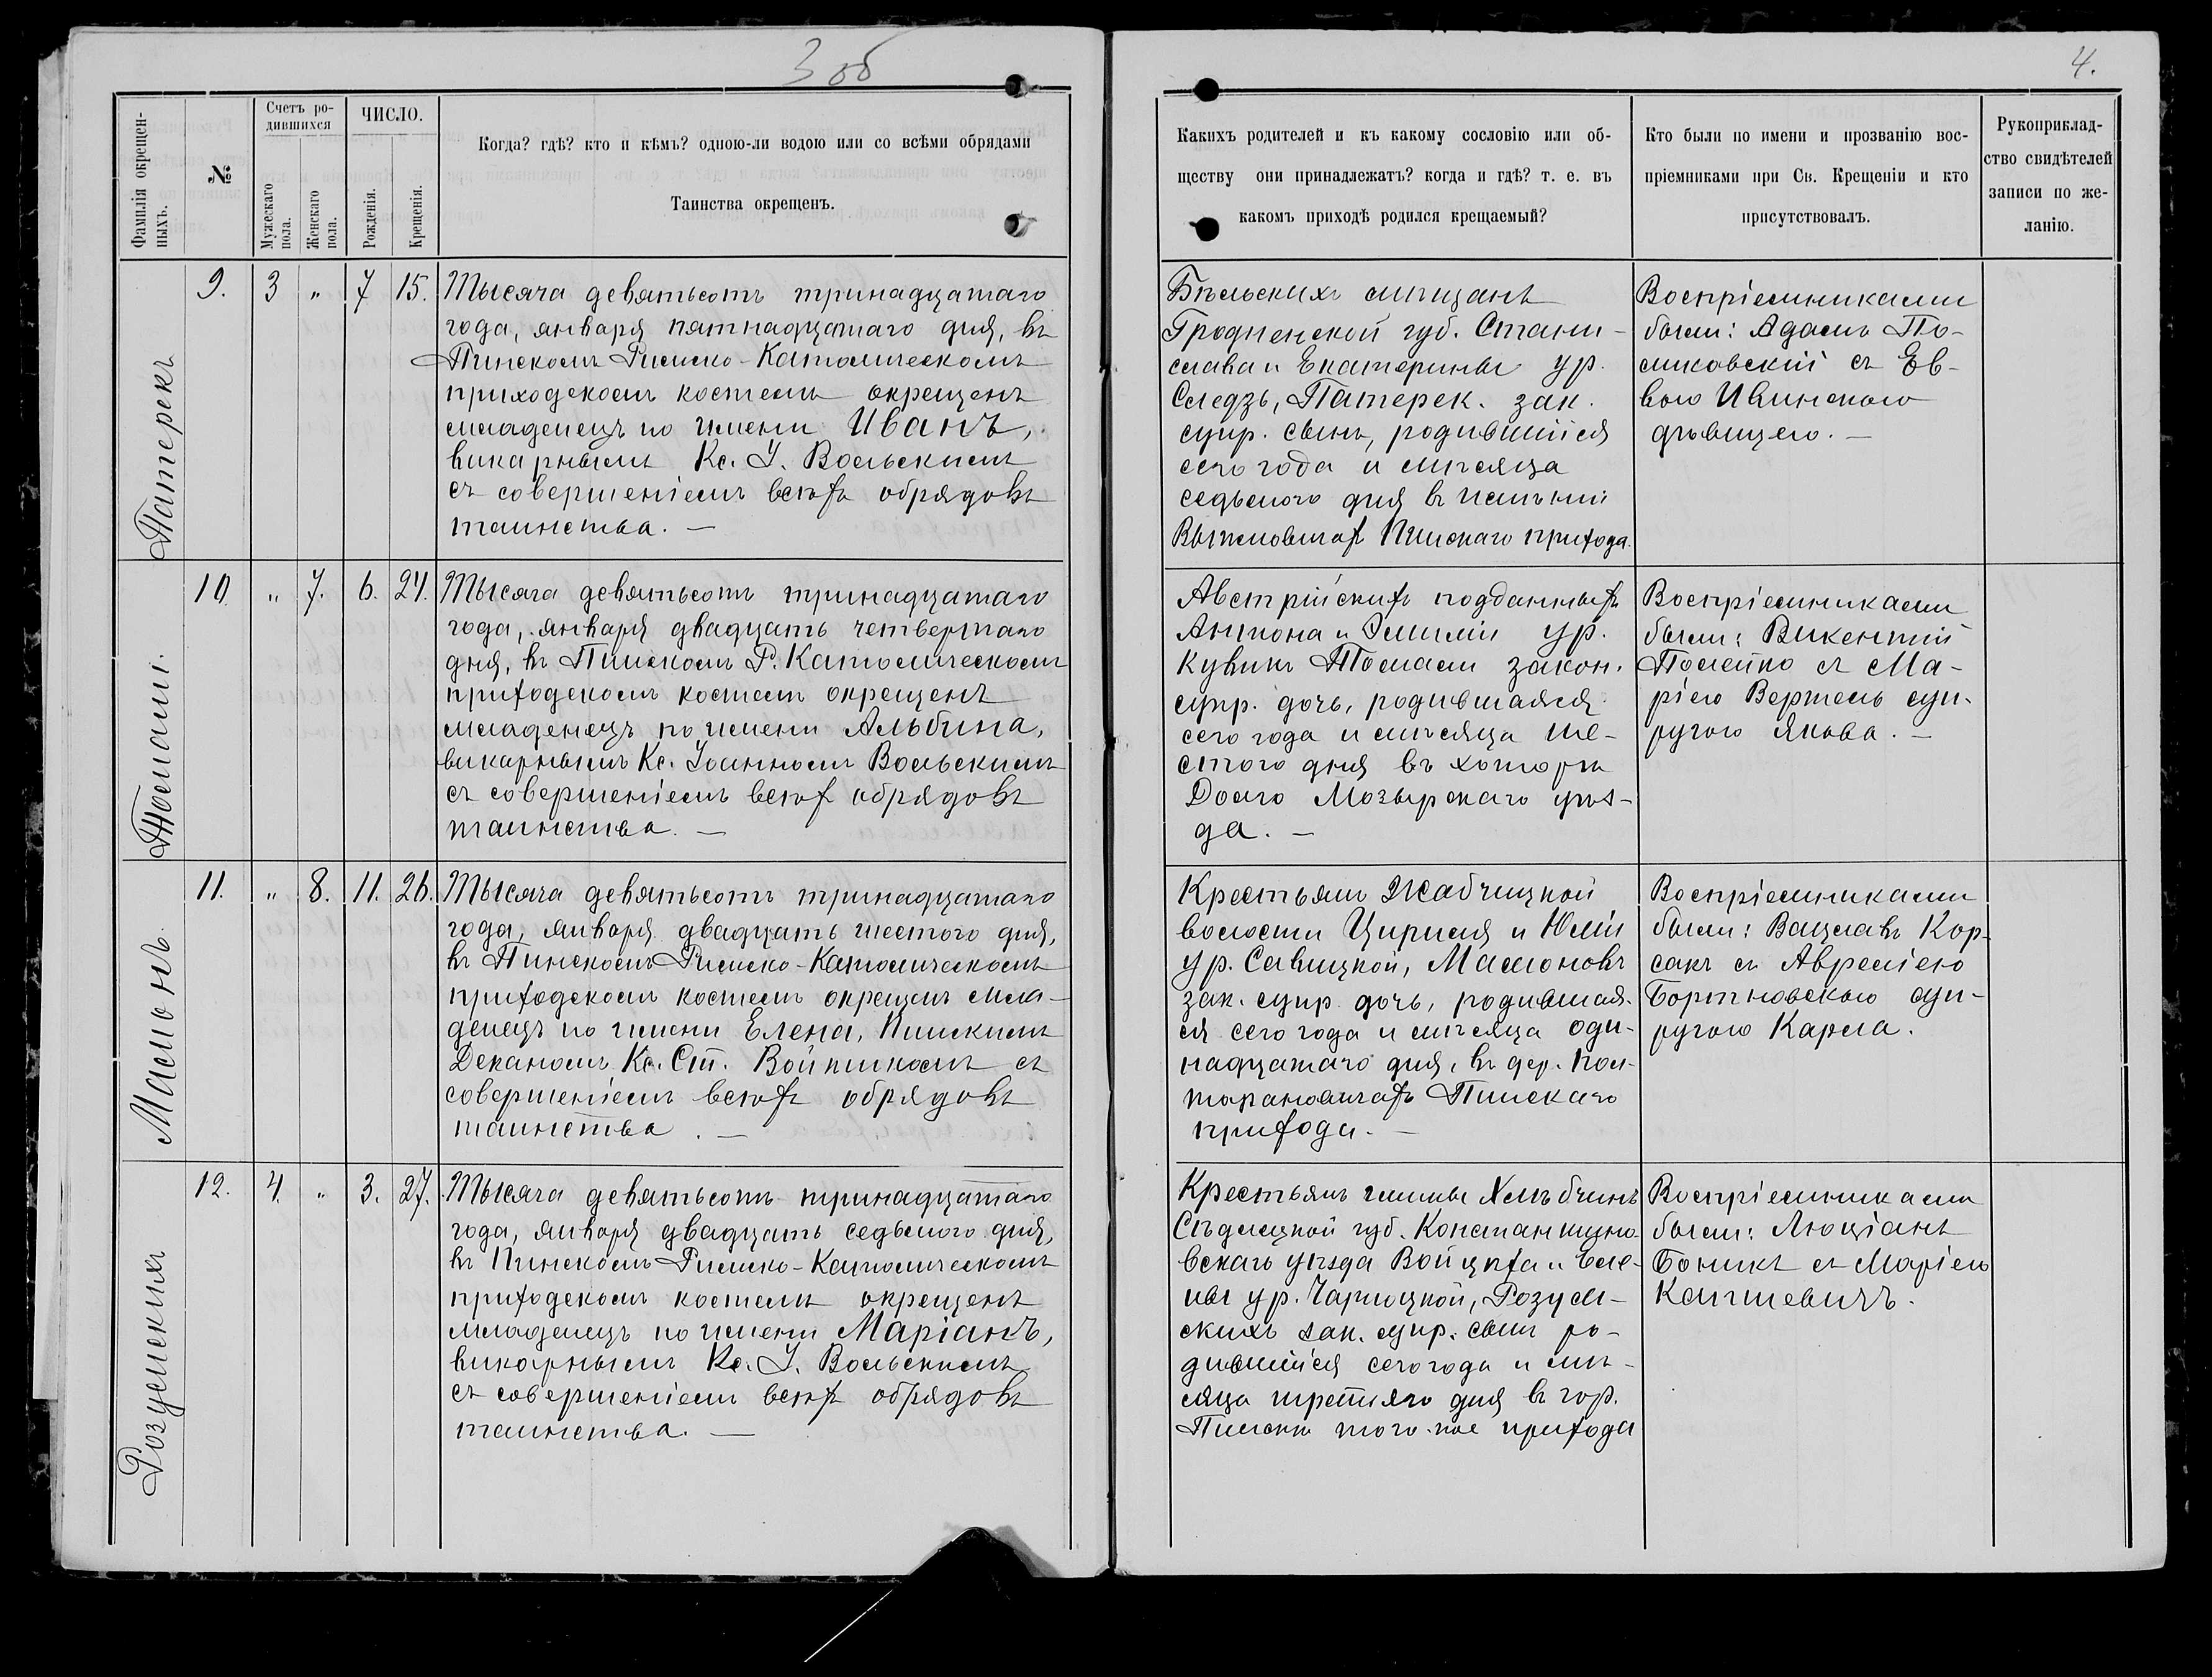 3 об
4.
Фамилія окрещен-
ныхъ.
№:
Счетъ ро-
дившихся
Мужескаго
пола.
Женскаго
пола.
ЧИСЛО.
Рожденія.
Крещенія.
Когда? гдѣ? кто и кѣмъ? одною-ли водою или со всѣми обрядами
Таинства окрещенъ.
Какихъ родителей и къ какому сословію или об-
ществу они принадлежатъ? когда и гдѣ? т. е. въ
какомъ приходѣ родился крещаемый?
Кто были по имени и прозванію вос-
пріемниками при Св. Крещеніи и кто
присутствовалъ.
Рукоприклад-
ство свидѣтелей
записи по же-
ланію.
Патерекъ
9. 3 „ 7 15.
Тысяча девятьсотъ тринадцатаго
года, января пятнадцатаго дня, въ
Пинскомъ Римско-Католическомъ
приходскомъ костелѣ окрещенъ
младенецъ по имени Иванъ,
викарнымъ Кс. І. Вольскимъ
съ совершеніемъ всѣхъ обрядовъ
таинства. —
Бѣльскихъ мѣщанъ
Гродненской губ. Стани-
слава и Екатерины ур.
Следзь, Патерек. зак.
супр. сынъ, родившійся
сего года и мѣсяца
седьмого дня въ имѣніи
Пинскаго прихода.
Воспріемниками
были: Адамъ По-
ликовскій съ Ев-
вою Ивинскою
дѣвицею. —
Томаши.
10. „ 7. 6. 24.
Тысяча девятьсотъ тринадцатаго
года, января двадцать четвертаго
дня, въ Пинскомъ Р. Католическомъ
приходскомъ костелѣ окрещенъ
младенецъ по имени Альбина,
викарнымъ Кс. Іоанномъ Вольскимъ
съ совершеніемъ всѣхъ обрядовъ
таинства. —
Австрійскихъ подданныхъ
Антона и Эмиліи ур.
Кувикъ Томаши закон.
супр. дочь, родившаяся
сего года и мѣсяца ше-
стого дня въ хуторѣ
Долго Мозырскаго уѣз-
да. —
Воспріемниками
были: Викентій
Полейко съ Ма-
ріею Вертель суп-
ругою Якова. —
Мамонъ.
11. „ 8. 11. 26.
Тысяча девятьсотъ тринадцатаго
года, января двадцать шестого дня,
въ Пинскомъ Римско-Католическомъ
приходскомъ костелѣ окрещенъ мла-
денецъ по имени Елена, Пинскимъ
Деканомъ Кс. Ст. Войтикомъ съ
совершеніемъ всѣхъ обрядовъ
таинства. —
Крестьянъ Жабчицкой
волости Циріля и Юліи
ур. Савицкой, Мамоновъ
зак. супр. дочь, родившая-
ся сего года и мѣсяца оди-
надцатаго дня, въ дер. Пол-
торановичахъ Пинскаго
прихода. —
Воспріемниками
были: Вацлавъ Кор-
сакъ съ Авреліею
Бортновскою суп-
ругою Карла.
Розумскихъ
12. 4. „ 3. 27.
Тысяча девятьсотъ тринадцатаго
года, января двадцать седьмого дня,
въ Пинскомъ Римско-Католическомъ
приходскомъ костелѣ окрещенъ
младенецъ по имени Маріанъ,
викарнымъ Кс. І. Вольскимъ
съ совершеніемъ всѣхъ обрядовъ
таинства. —
Крестьянъ гмины Хлѣбчинъ
Сѣдлецкой губ. Константино-
вскаго уѣзда Войцѣха и Еле-
ны ур. Чарноцкой, Розум-
скихъ зак. супр. сынъ ро-
дившійся сего года и мѣ-
сяца третьяго дня въ гор.
Пинскѣ того-же прихода
Воспріемниками
были: Люціанъ
Боникъ съ Маріею